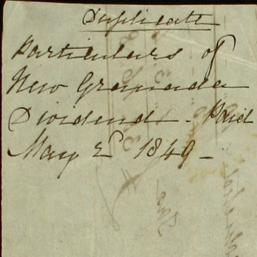 Duplicate
Particulars of
New Granada
Dividend. Paid
May 2d 1849 -